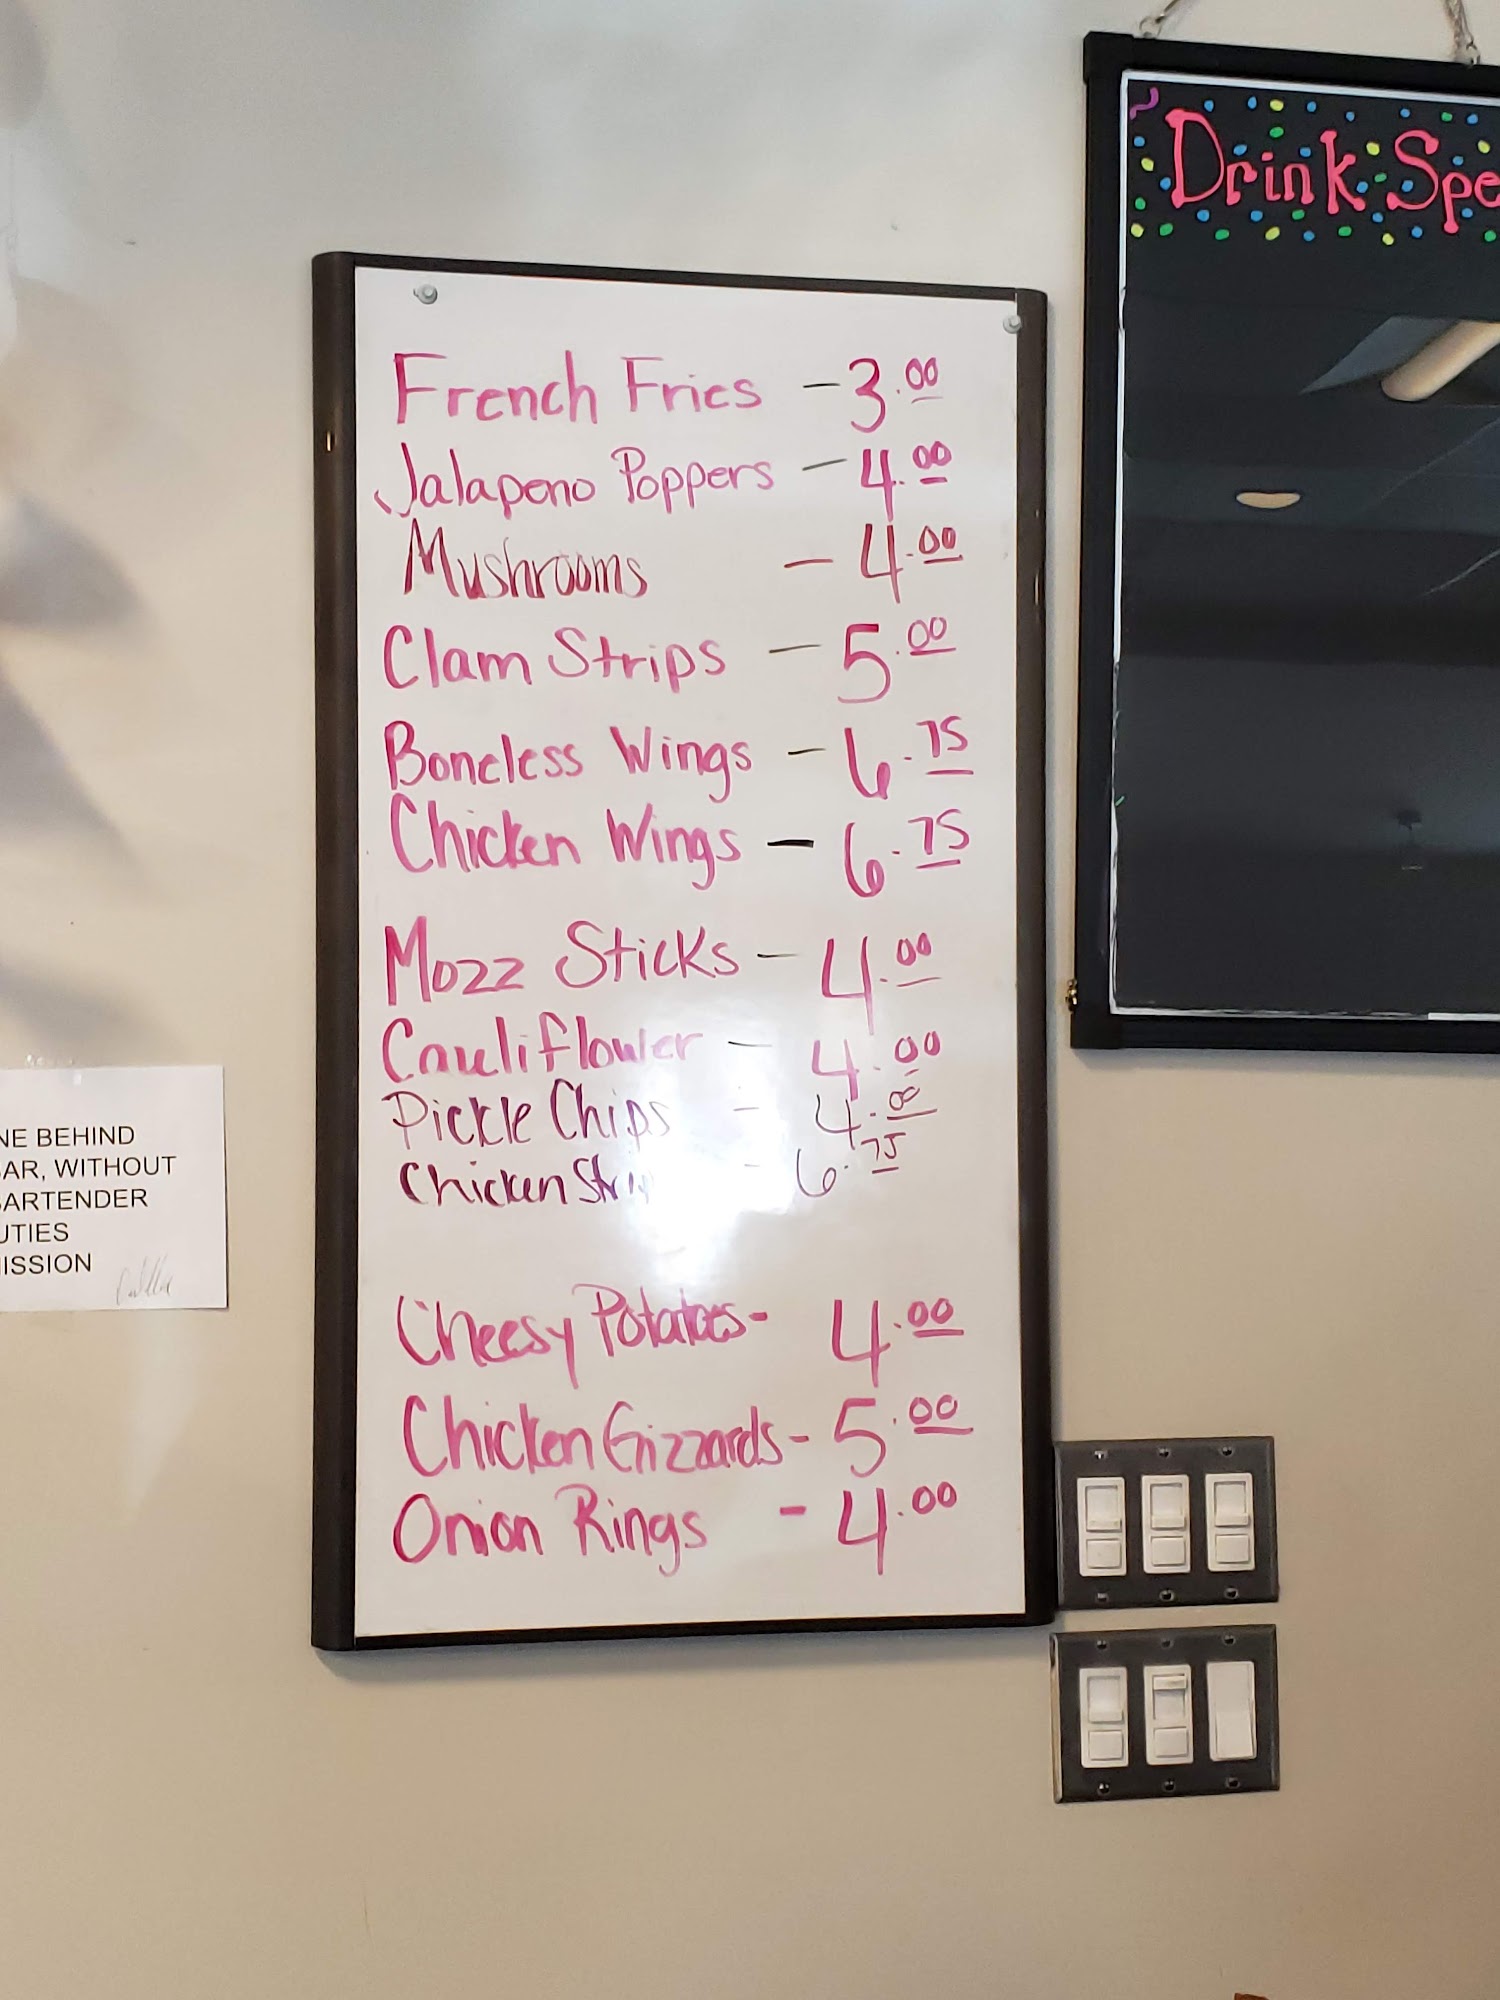 French Fries - 3.00
Jalapeno Poppers - 4.00
Mushrooms - 4.00
Clam Strips - 5.00
Boneless Wings - 6.75
Chicken Wings - 6.75
Mozz Sticks - 4.00
Cauliflower - 4.00
Pickle Chips - 4.00
Chicken Stri - 6.75
Cheesy Potatoes - 4.00
Chicken Gizzards - 5.00
Onion Rings - 4.00
Drink Spe
NE BEHIND
AR, WITHOUT
ARTENDER
UTIES
ISSION